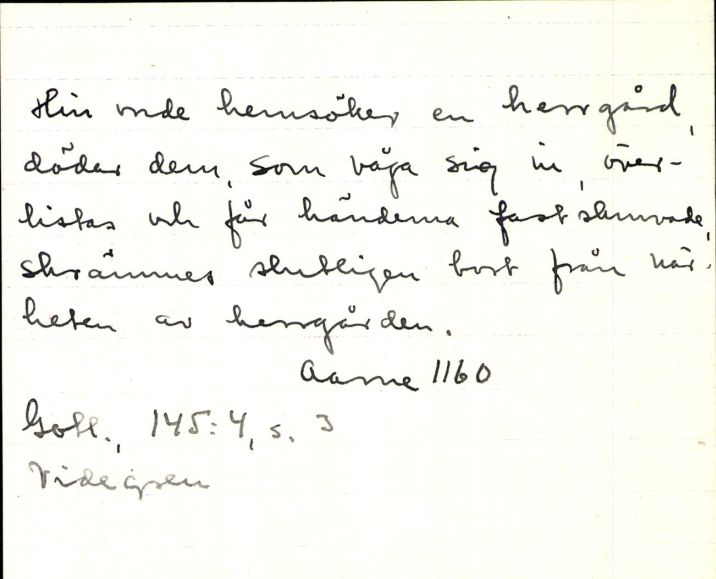 Hin onde hemsöker en herrgård,
dödar dem, som våga sig in, över-
listas och får händerna fastskruvade,
skrämmes slutligen bort från när-
heten av herrgården.
Aarne 1160
Gotl., 145:4, s. 3